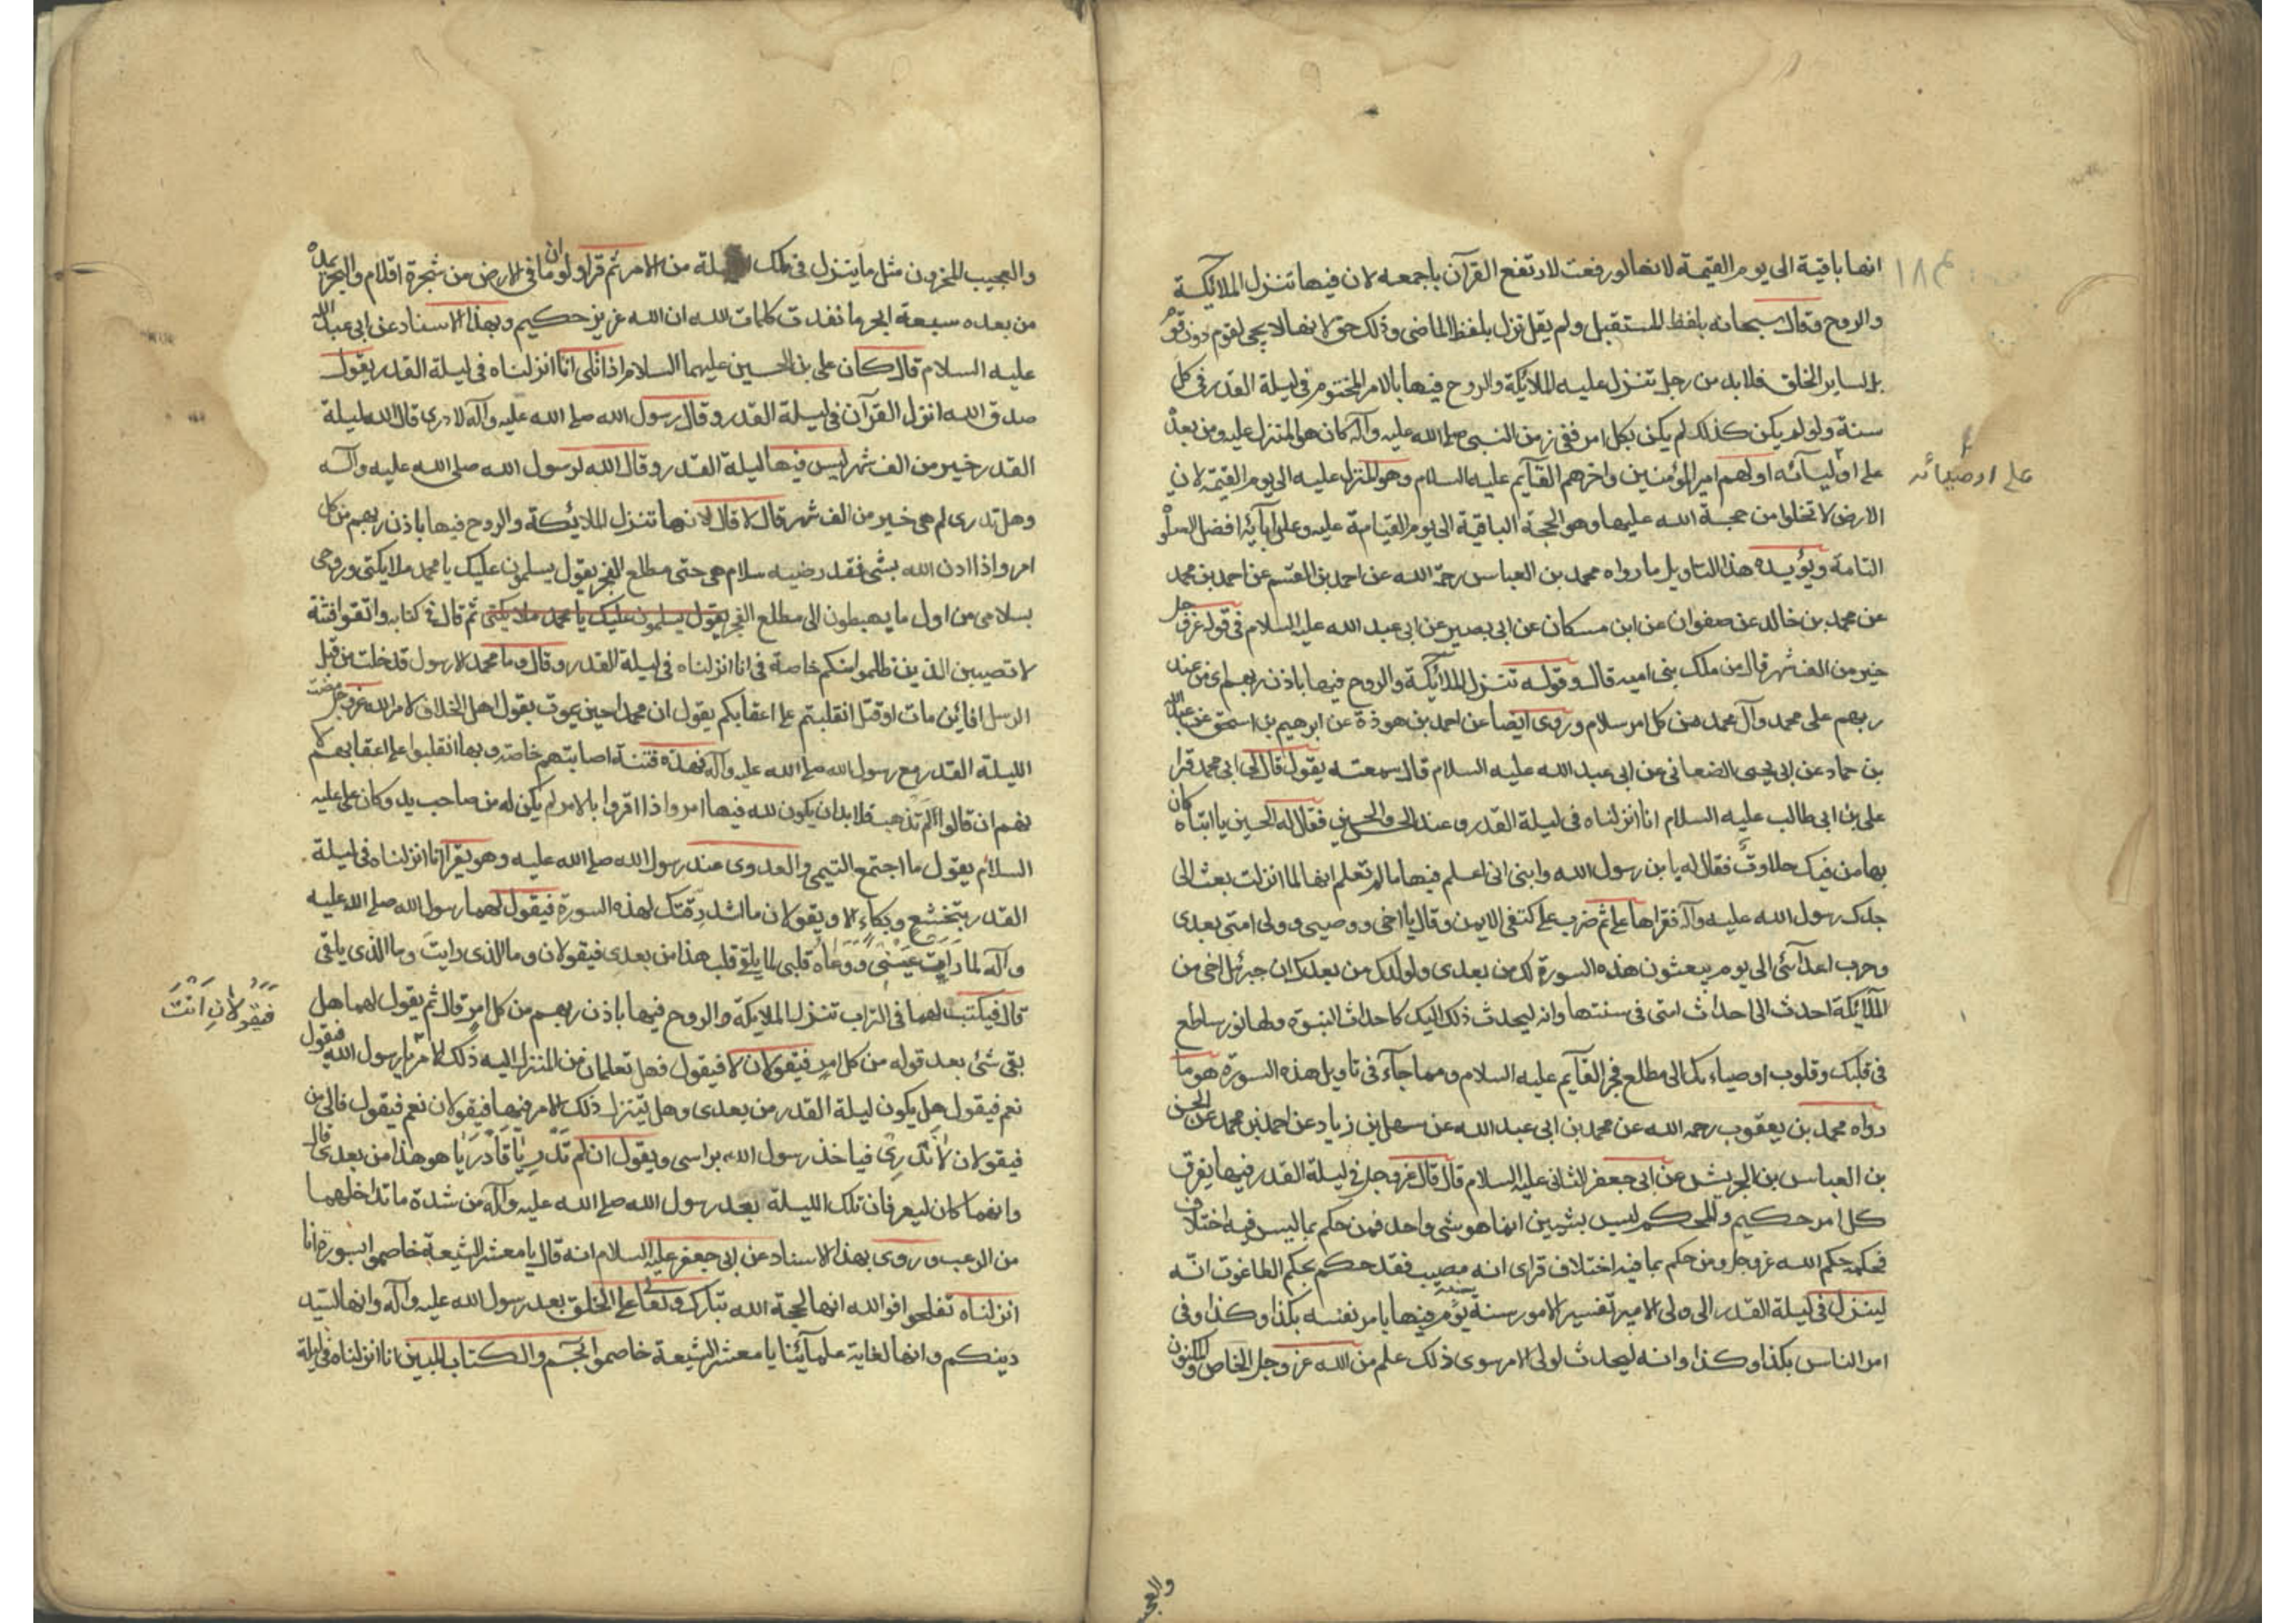 انها باقية الى يوم القيمة لانها لو رفعت لارتفع القرآن باجمعه لان فيها تنزل الملائكة
والروح وقال سبحانه بلفظ المستقبل ولم يقل نزل بلفظ الماضى وذلك حق لانها لا يجى لقوم دون قوم
بل لساير الخلق فلا بد من رجل تنزل عليه الملائكة والروح فيها بالامر المختوم فى ليلة القدر فى كل
سنة ولو لم يكن كذلك لم يكن بكل امر ففى زمن النبى صلى الله عليه وآله كان هو المنزل عليه ومن بعده
على اوليآئه اولهم امير المؤمنين واخرهم القآيم عليه السلام وهو المنزل عليه الى يوم القيمة لان
على اوصيائه
الارض لا تخلوا من حجة الله عليها وهو الحجة الباقية الى يوم القيامة عليه وعلى آبآئه افضل الصلوة
التامة ويؤيده هذا التاويل ما رواه محمد بن العباس رحمه الله عن احمد بن القسم عن احمد بن محمد
عن محمد بن خالد عن صفوان عن ابن مسكان عن ابى بصير عن ابى عبد الله عليه السلام فى قوله عز وجل
خير من الف شهر قال من ملك بنى اميه قال وقوله تنزل الملائكة والروح فيها باذن ربهم اى من عند
ربهم على محمد وآل محمد من كل امر سلام وروى ايضا عن احمد بن هوذة عن ابرهيم بن اسحق عن عبد الله
بن حماد عن ابى يحيى الصنعانى عن ابى عبد الله عليه السلام قال سمعته يقول قال لى ابى محمد قرا
على بن ابى طالب عليه السلام انا انزلناه فى ليلة القدر وعنده الحسن والحسين فقال له الحسين يا ابتاه كان
بها من فيك حلاوة فقال له يا بن رسول الله وابنى انى اعلم فيها ما لم تعلم انها لما انزلت بعث الى
جدك رسول الله عليه وآله فقراها على ثم ضرب على كتفى الايمن وقال يا اخى ووصيى وولى امتى بعدى
وحرب اعدآئى الى يوم يبعثون هذه السورة لك من بعدى ولولدك من بعدك ان جبرئل اخى من
الملائكة احدث الى احداث امتى فى سنتها وانه ليحدث ذلك اليك كاحداث النبوة ولها نور ساطع
فى قلبك وقلوب اوصياءك الى مطلع فجر القآيم عليه السلام ومما جآء فى تاويل هذه السورة هو ما
رواه محمد بن يعقوب رحمه الله عن محمد بن ابى عبد الله عن سهل بن زياد عن احمد بن محمد عن الحسن
بن العباس بن الحريش عن ابى جعفر الثانى عليه السلام قال قال عز وجل فى ليلة القدر فيها يفرق
كل امر حكيم والمحكم ليس بشيين انما هو شى واحد فمن حكم بما ليس فيه اختلاف
فحكمه حكم الله عز وجل ومن حكم بما فيه اختلاف فراى انه مصيب فقد حكم بحكم الطاغوت انه
لينزل فى ليلة القدر الى ولى الامر تفسير الامور سنة سنة يؤمر فيها بامر نفسه بكذا وكذا وفى
امر الناس بكذا وكذا وانه ليحدث لولى الامر سوى ذلك علم من الله عز وجل الخاص والمكنون
والعجيب
والعجيب المخزون مثل ما ينزل فى تلك الليلة من الامر ثم قرا ولو ان ما فى الارض من شجرة اقلام والبحر يمده
من بعده سبعة ابحر ما نفدت كلمات الله ان الله عزيز حكيم وبهذا الاسناد عن ابى عبد الله
عليه السلام قال كان على بن الحسين عليهما السلام اذا تلى انا انزلناه فى ليلة القدر يقول
صدق الله انزل القرآن فى ليلة القدر وقال رسول الله صلى الله عليه وآله لا ادرى قال الله ليلة
القدر خير من الف شهر ليس فيها ليلة القدر وقال الله لرسول الله صلى الله عليه وآله
وهل تدرى لم هى خير من الف شهر قال لا قال لانها تنزل الملائكة والروح فيها باذن ربهم من كل
امر واذا اذن الله بشى فقد رضيه سلام هى حتى مطلع الفجر يقول يسلمون عليك يا محمد ملايكتى وروحى
بسلامى من اول ما يهبطون الى مطلع الفجر يقول يسلمون عليك يا محمد ملايكتى ثم قال فى كتابه واتقوا فتنة
لا تصيبن الذين ظلموا منكم خاصة فى انا انزلناه فى ليلة القدر وقال وما محمد الا رسول قد خلت من قبله
الرسل افائن مات او قتل انقلبتم على اعقابكم يقول ان محمدا حين يموت يقول اهل الخلاف لامر الله عز وجل مضت
الليلة القدر مع رسول الله صلى الله عليه وآله فهذه فتنة اصابتهم خاصة وبها انقلبوا على اعقابهم لا
نهم ان قالوا لم تذهب فلا بد ان يكون لله فيها امر واذا اقروا بالامر لم يكن له من صاحب بد وكان على عليه
السلام يقول ما اجتمع التيمى والعدوى عند رسول الله صلى الله عليه وهو يقرا انا انزلناه فى ليلة
القدر بتخشع وبكاء الا ويقولان ما اشد رقتك لهذه السورة فيقول لهما رسول الله صلى الله عليه
وآله لما رات عينى ووعاه قلبى لما يلقى قلب هذا من بعدى فيقولان وما الذى رايت وما الذى يلقى
قال فيكتب لهما فى التراب تنزل الملايكة والروح فيها باذن ربهم من كل امر قال ثم يقول لهما هل
فيقولان انت
بقى شئ بعد قوله من كل امر فيقولان لا فيقول فهل تعلمان من المنزل اليه ذلك الامر يا رسول الله فيقول
نعم فيقول هل يكون ليلة القدر من بعدى وهل يتنزل ذلك الامر فيها فيقولان نعم فيقول فالى من
فيقولان لا ندرى فياخذ رسول الله براسى ويقول ان لم تدريا فادريا هو هذا من بعدى قال
وانهما كان ليعرفان تلك الليلة بعد رسول الله صلى الله عليه وآله من شدة ما تداخلهما
من الرعب وروى بهذا الاسناد عن ابى جعفر عليه السلام انه قال يا معشر الشيعة خاصموا بسورة انا
انزلناه تفلحوا فوالله انها لحجة الله تبارك وتعالى على الخلق بعد رسول الله عليه وآله وانها لسيدة
دينكم وانها لغاية علمآئنا يا معشر الشيعة خاصموا بحم والكتاب المبين انا انزلناه فى ليلة